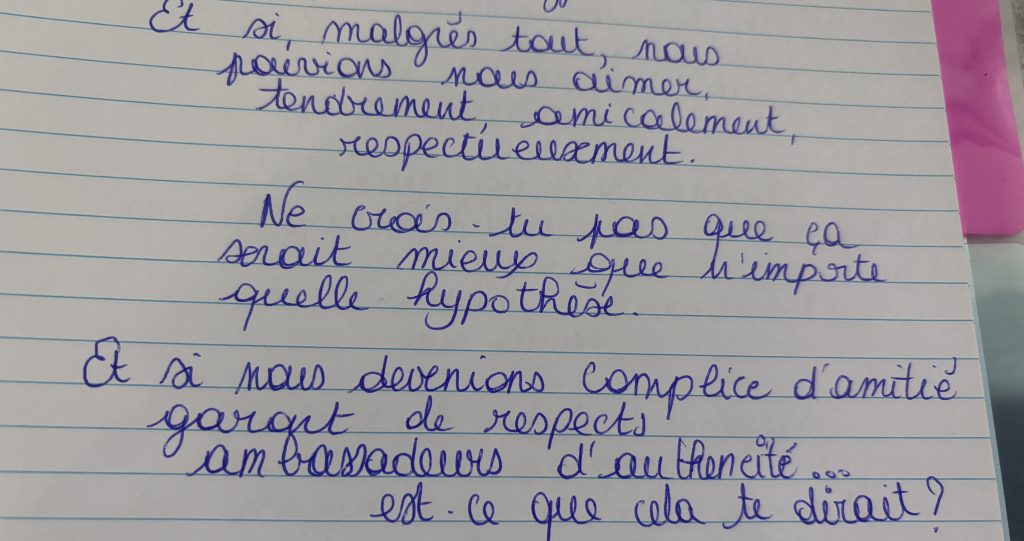 Et si, malgrés tout, nous
pouvions nous aimer,
tendrement, amicalement,
respectueusement.
Ne crois-tu pas que ça
serait mieux que n'importe
quelle hypothèse.
Et si nous devenions complice d'amitié
garant de respects
ambassadeurs d'authencité...
est-ce que cela te dirait ?